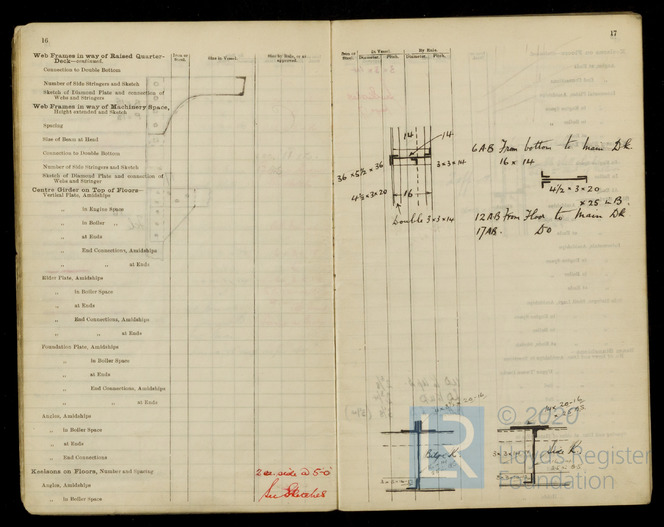 16
Web Frames in way of Raised Quarter-
Deck—continued.
Rivs or
Size in Vessel.
Size by Rule, or as
approved.
Connection to Double Bottom
Number of Side Stringers and Sketch
Sketch of Diamond Plate and connection of
Webs and Stringers
Web Frames in way of Machinery Space,
Height extended and Sketch
Spacing
Size of Beam at Head
Connection to Double Bottom
Number of Side Stringers and Sketch
Sketch of Diamond Plate and connection of
Webs and Stringer
Centre Girder on Top of Floors—
Vertical Plate, Amidships
„ in Engine Space
„ in Boiler „
„ at Ends
„ End Connections, Amidships
„ „ at Ends
Rider Plate, Amidships
„ in Boiler Space
„ at Ends
„ End Connections, Amidships
„ „ at Ends
Foundation Plate, Amidships
„ in Boiler Space
„ at Ends
„ End Connections, Amidships
„ „ at Ends
Angles, Amidships
„ in Boiler Space
„ at Ends
„ End Connections
Keelsons on Floors, Number and Spacing
2 ea. side @ 5-0
Angles, Amidships
See Sketches
„ in Boiler Space
17
In Vessel.
By Rule.
Diameter.
Pitch.
Diameter.
Pitch.
14
14
36 × 5½ × 36
3 × 3 × 14
4½ × 3 × 20
16
Double 3 × 3 × 14
6 AB From bottom to Main Dk
16 × 14
4½ × 3 × 20
× 25 in B.
12 AB From Floor to Main Dk
17 AB. Do
20-16
Bilge K
20-16
Side K
LR
© 2020
Lloyd's Register
Foundation